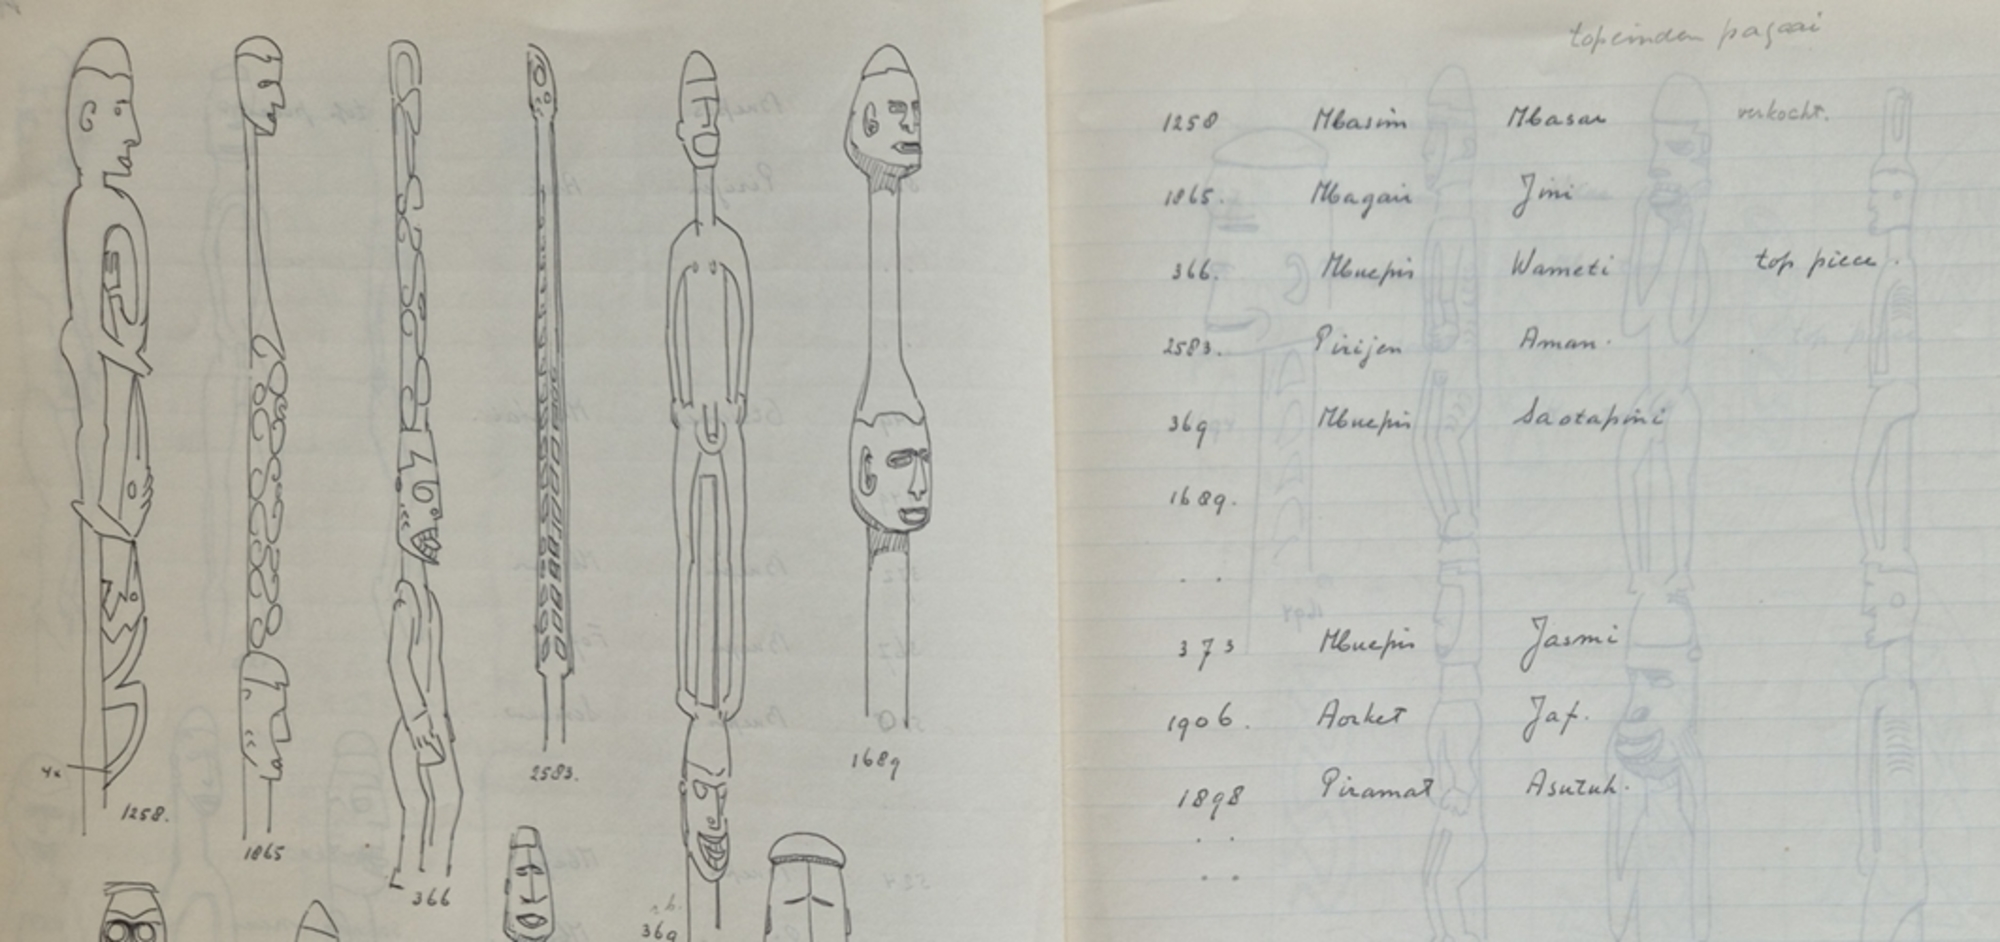 4x
1258.
1865
366
2583.
369
1689
topeinden pagaai
1258 Mbasim Mbasar verkocht.
1865. Mbagair Jini
366. Mbuepis Wameti top piece.
2583. Pirijen Aman.
369 Mbuepis Saotapini
1689.
. .
373 Mbuepis Jasmi
1906. Aorket Jaf.
1898 Piramat Asutuh.
. .
. .